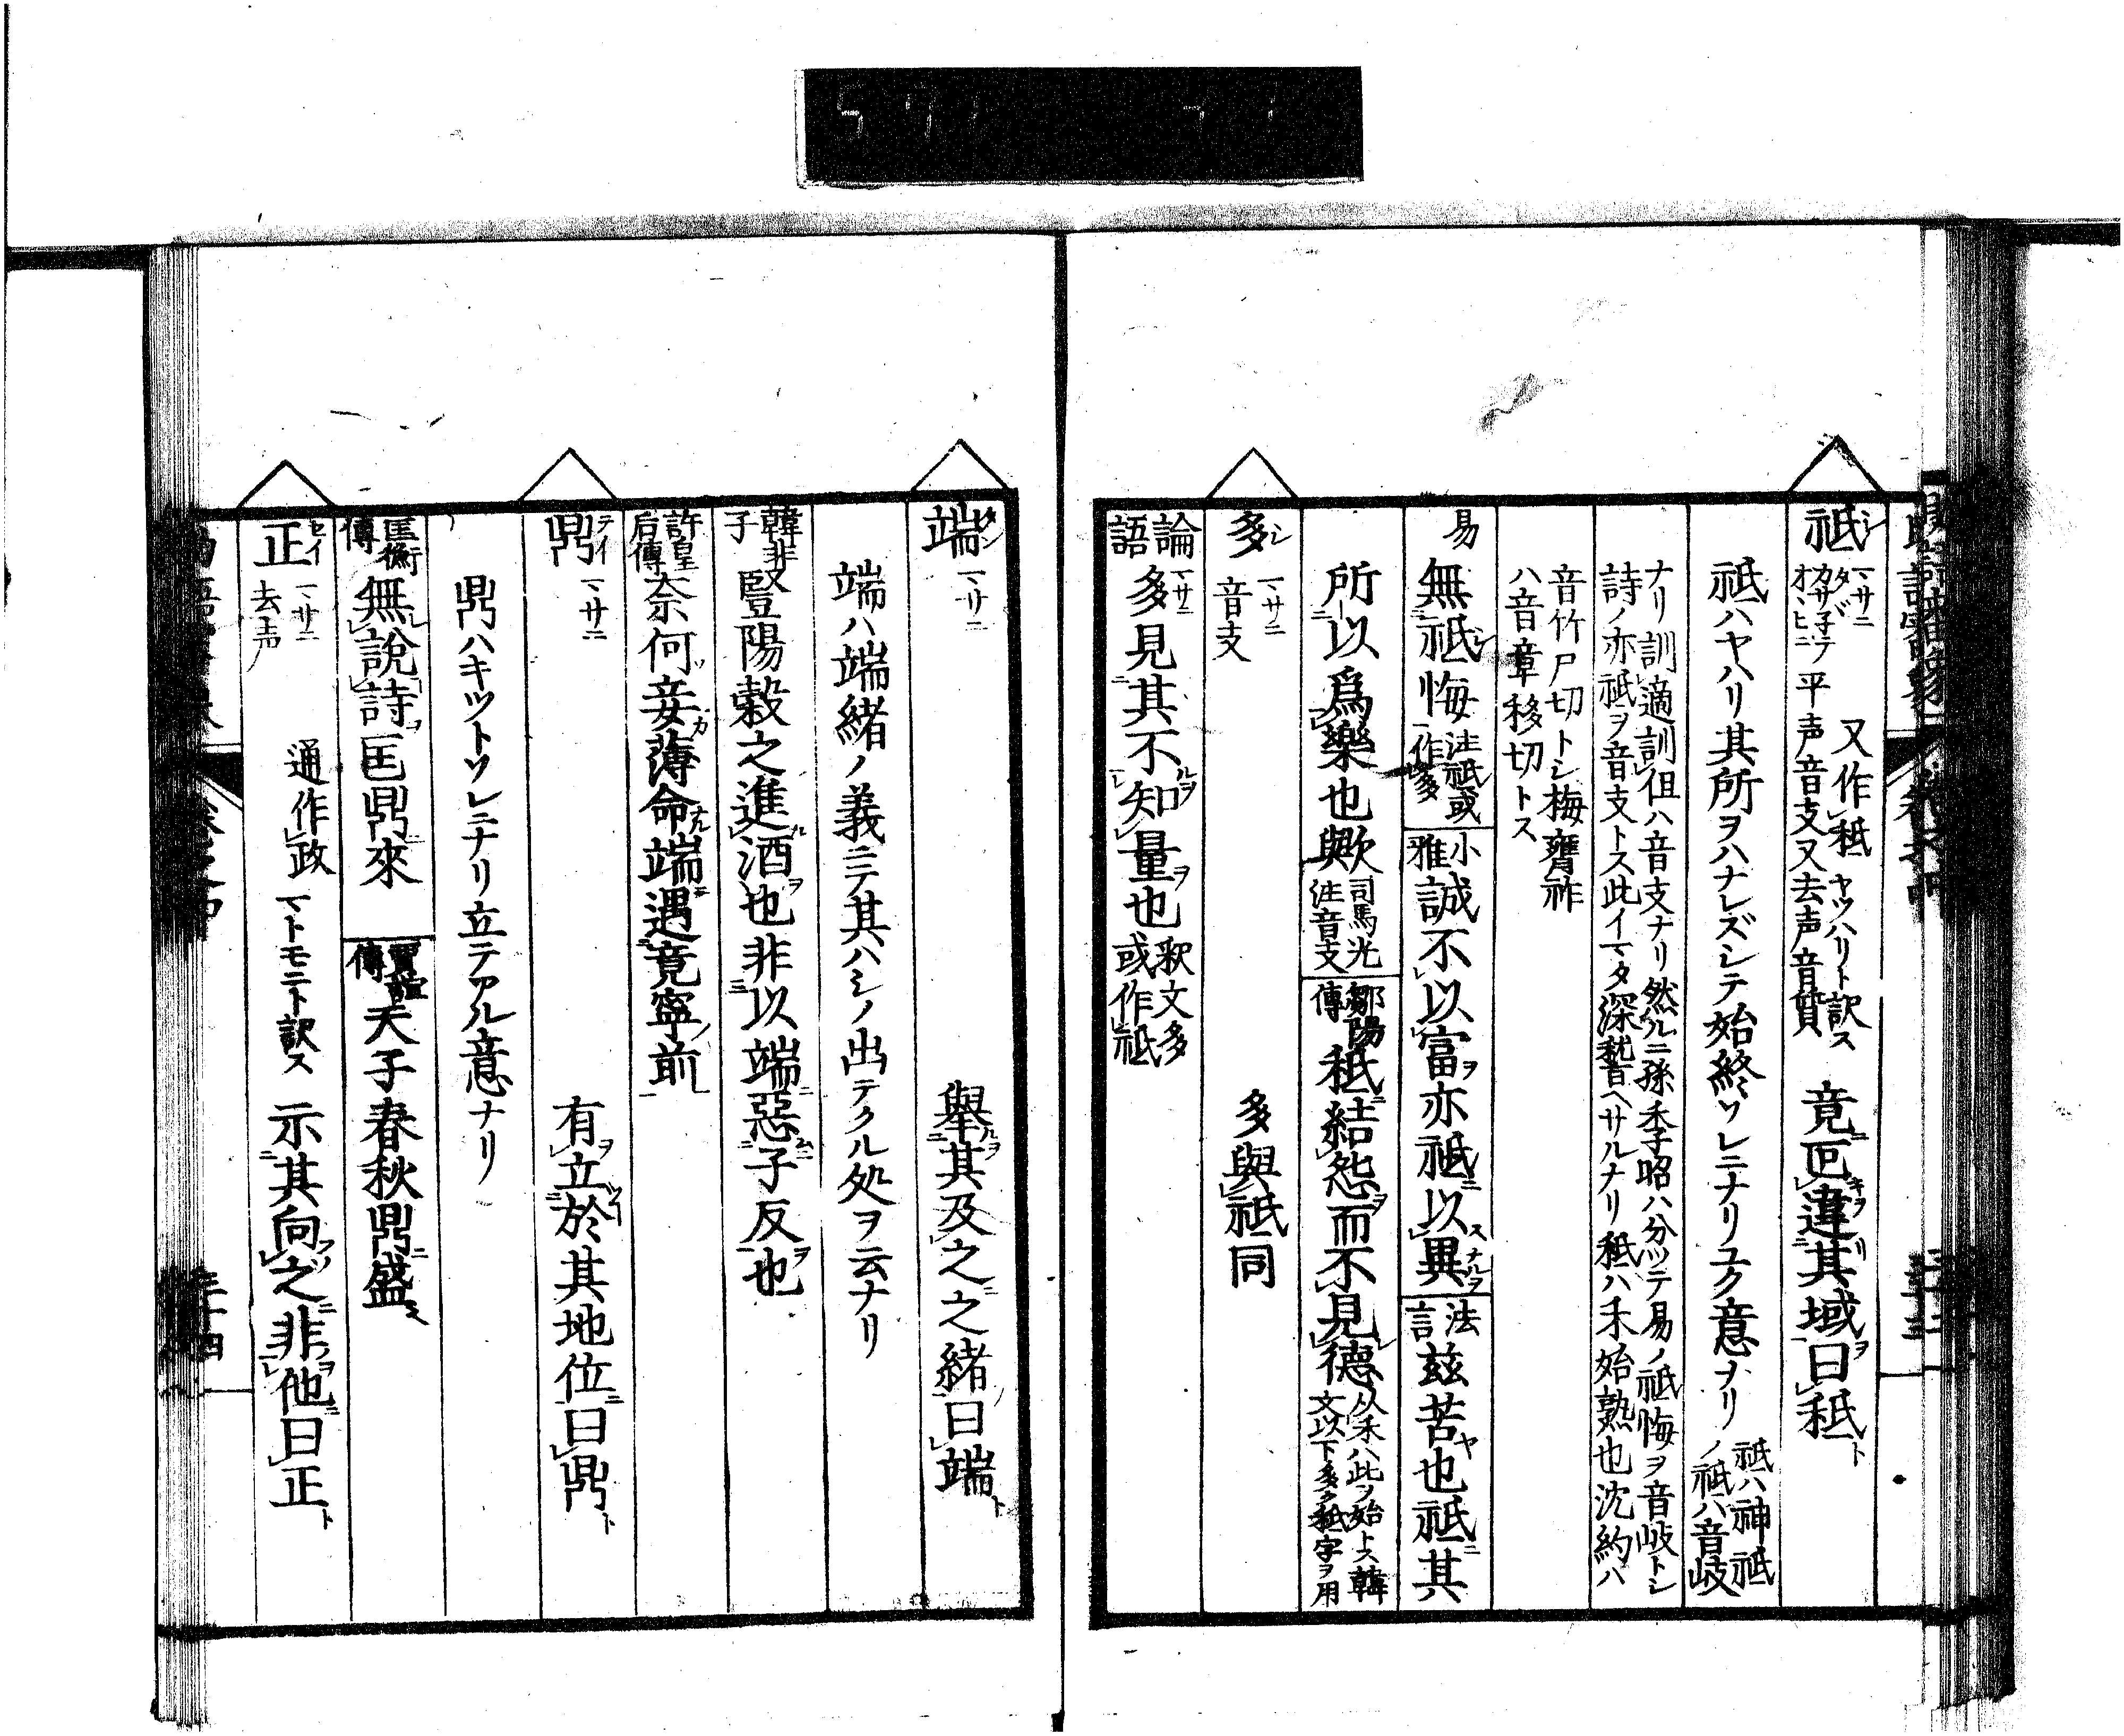 祗 シ マサニ タヾ カサ子テ オヽヒニ 平声音支又去声音質 又作秪 ヤツハリト訳ス 竟叵違其域曰秪
祗ハヤハリ其所ヲハナレズシテ始終ソレニナリユク意ナリ 祗ハ神祗ノ祗ハ音岐
ナリ訓適訓但ハ音支ナリ然ルニ孫季昭ハ分ツテ易ノ祗悔ヲ音岐トシ
詩ノ亦祗ヲ音支トス此イマタ深嵇ヘサルナリ秪ハ禾始熟也沈約ハ
音竹尸切トシ梅膺祚
ハ音章移切トス
易 無祗悔 注祗或一作多 小雅 誠不以富亦祗以異 法言 茲苦也祗其
所以爲樂也歟 司馬光注音支 鄒陽傳 秪結怨而不見德 从禾ハ此ヲ始トス韓文以下多ク秪字ヲ用
多 シ マサニ 音支 多與祗同
論語 多見其不知量也 釈文多或作祗
端 タン マサニ 舉其及之之緒曰端
端ハ端緒ノ義ニテ其ハシノ出テクル処ヲ云ナリ
韓非子 豎陽穀之進酒也非以端惡子反也
許皇后傳 奈何妾薄命端遇竟寧前
鼎 テイ マサニ 有立於其地位曰鼎
鼎ハキツトソレニナリ立テアル意ナリ
匡衡傳 無說詩匡鼎來 賈誼傳 天子春秋鼎盛
正 セイ マサニ 去声 通作政 マトモニト訳ス 示其向之非他曰正